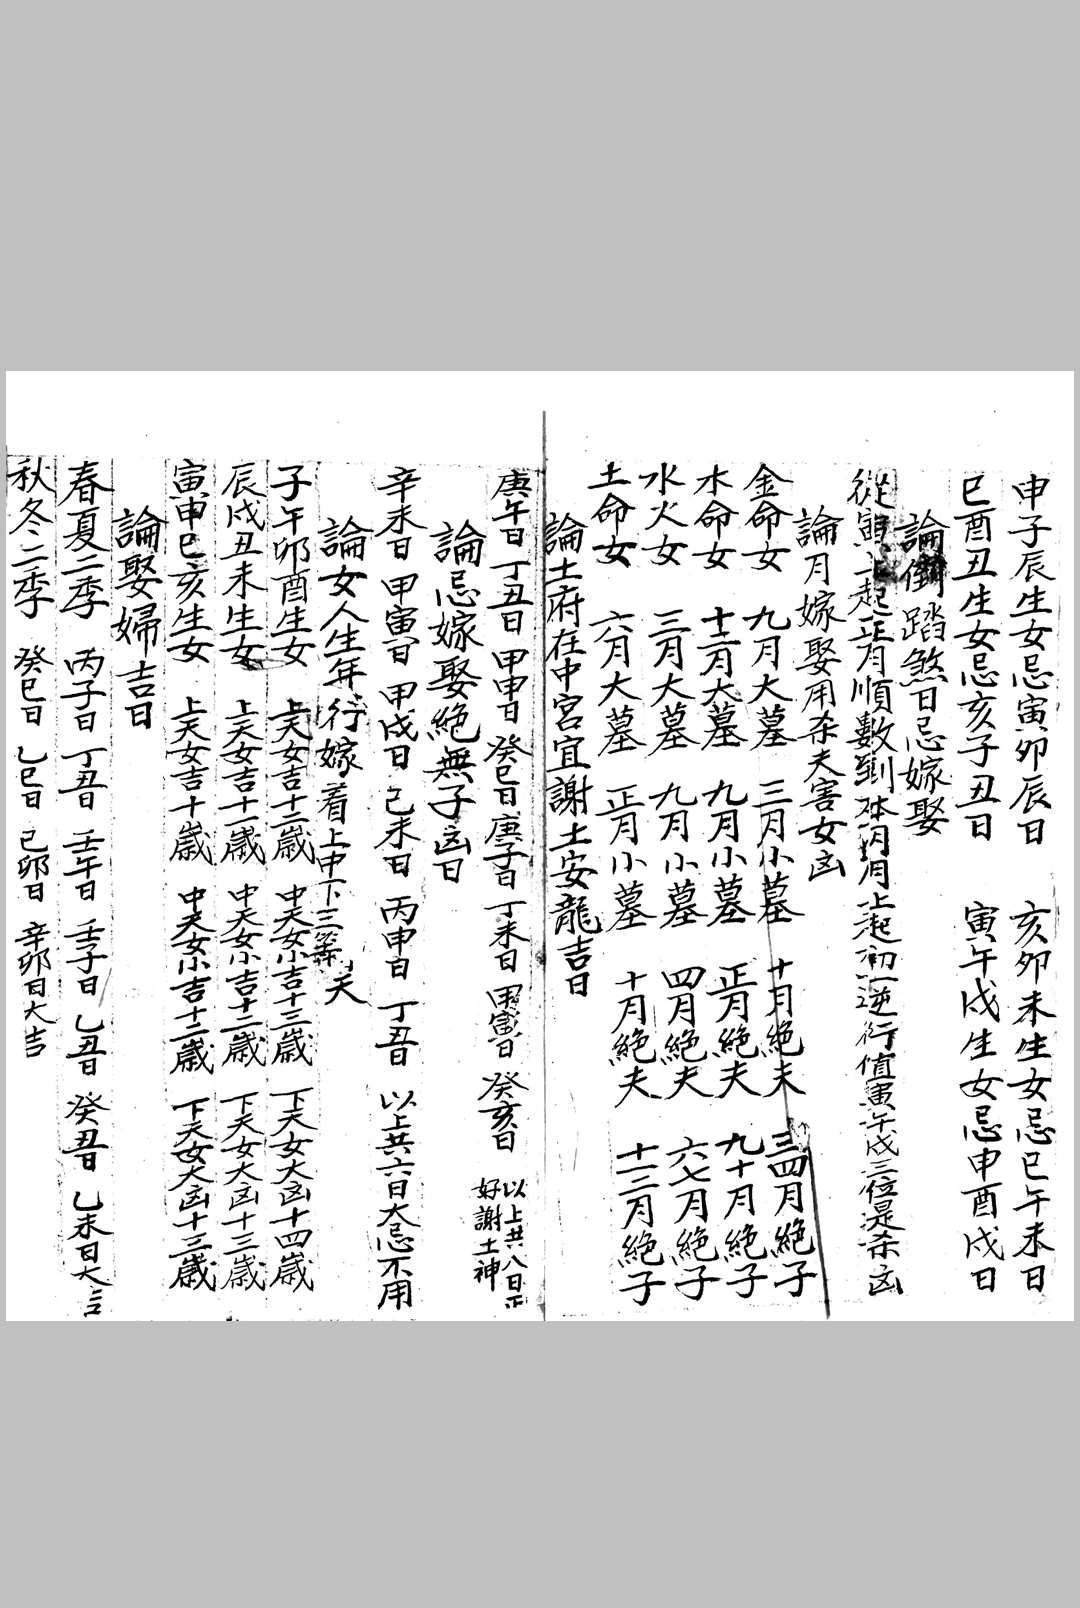 申子辰生女忌寅卯辰日　亥卯未生女忌巳午未日
巳酉丑生女忌亥子丑日　寅午戌生女忌申酉戌日
論倒踏煞日忌嫁娶
從寅上起正月順數到本月月上起初一逆行值寅午戌三位是杀凶
論月嫁娶用杀夫害女凶
金命女　九月大墓　三月小墓　十月絶夫　三四月絶子
木命女　十二月大墓　九月小墓　正月絶夫　九十月絶子
水火女　三月大墓　九月小墓　四月絶夫　六七月絶子
土命女　六月大墓　正月小墓　十月絶夫　十二月絶子
論土府在中宮宜謝土安龍吉日
庚午日　丁丑日　甲申日　癸巳日　庚子日　丁未日　甲寅日　癸亥日　以上共八日正
好謝土神
論忌嫁娶絶無子凶日
辛未日　甲寅日　甲戌日　己未日　丙申日　丁丑日　以上共六日大忌不用
論女人生年行嫁着上中下三等天
子午卯酉生女　上天女吉十二歳　中天女小吉十三歳　下天女大凶十四歳
辰戌丑未生女　上天女吉十一歳　中天女小吉十二歳　下天女大凶十三歳
寅申巳亥生女　上天女吉十歳　中天女小吉十二歳　下天女大凶十三歳
論娶婦吉日
春夏二季　丙子日　丁丑日　壬午日　壬子日　乙丑日　癸丑日　乙未日大吉
秋冬二季　癸巳日　乙巳日　己卯日　辛卯日大吉